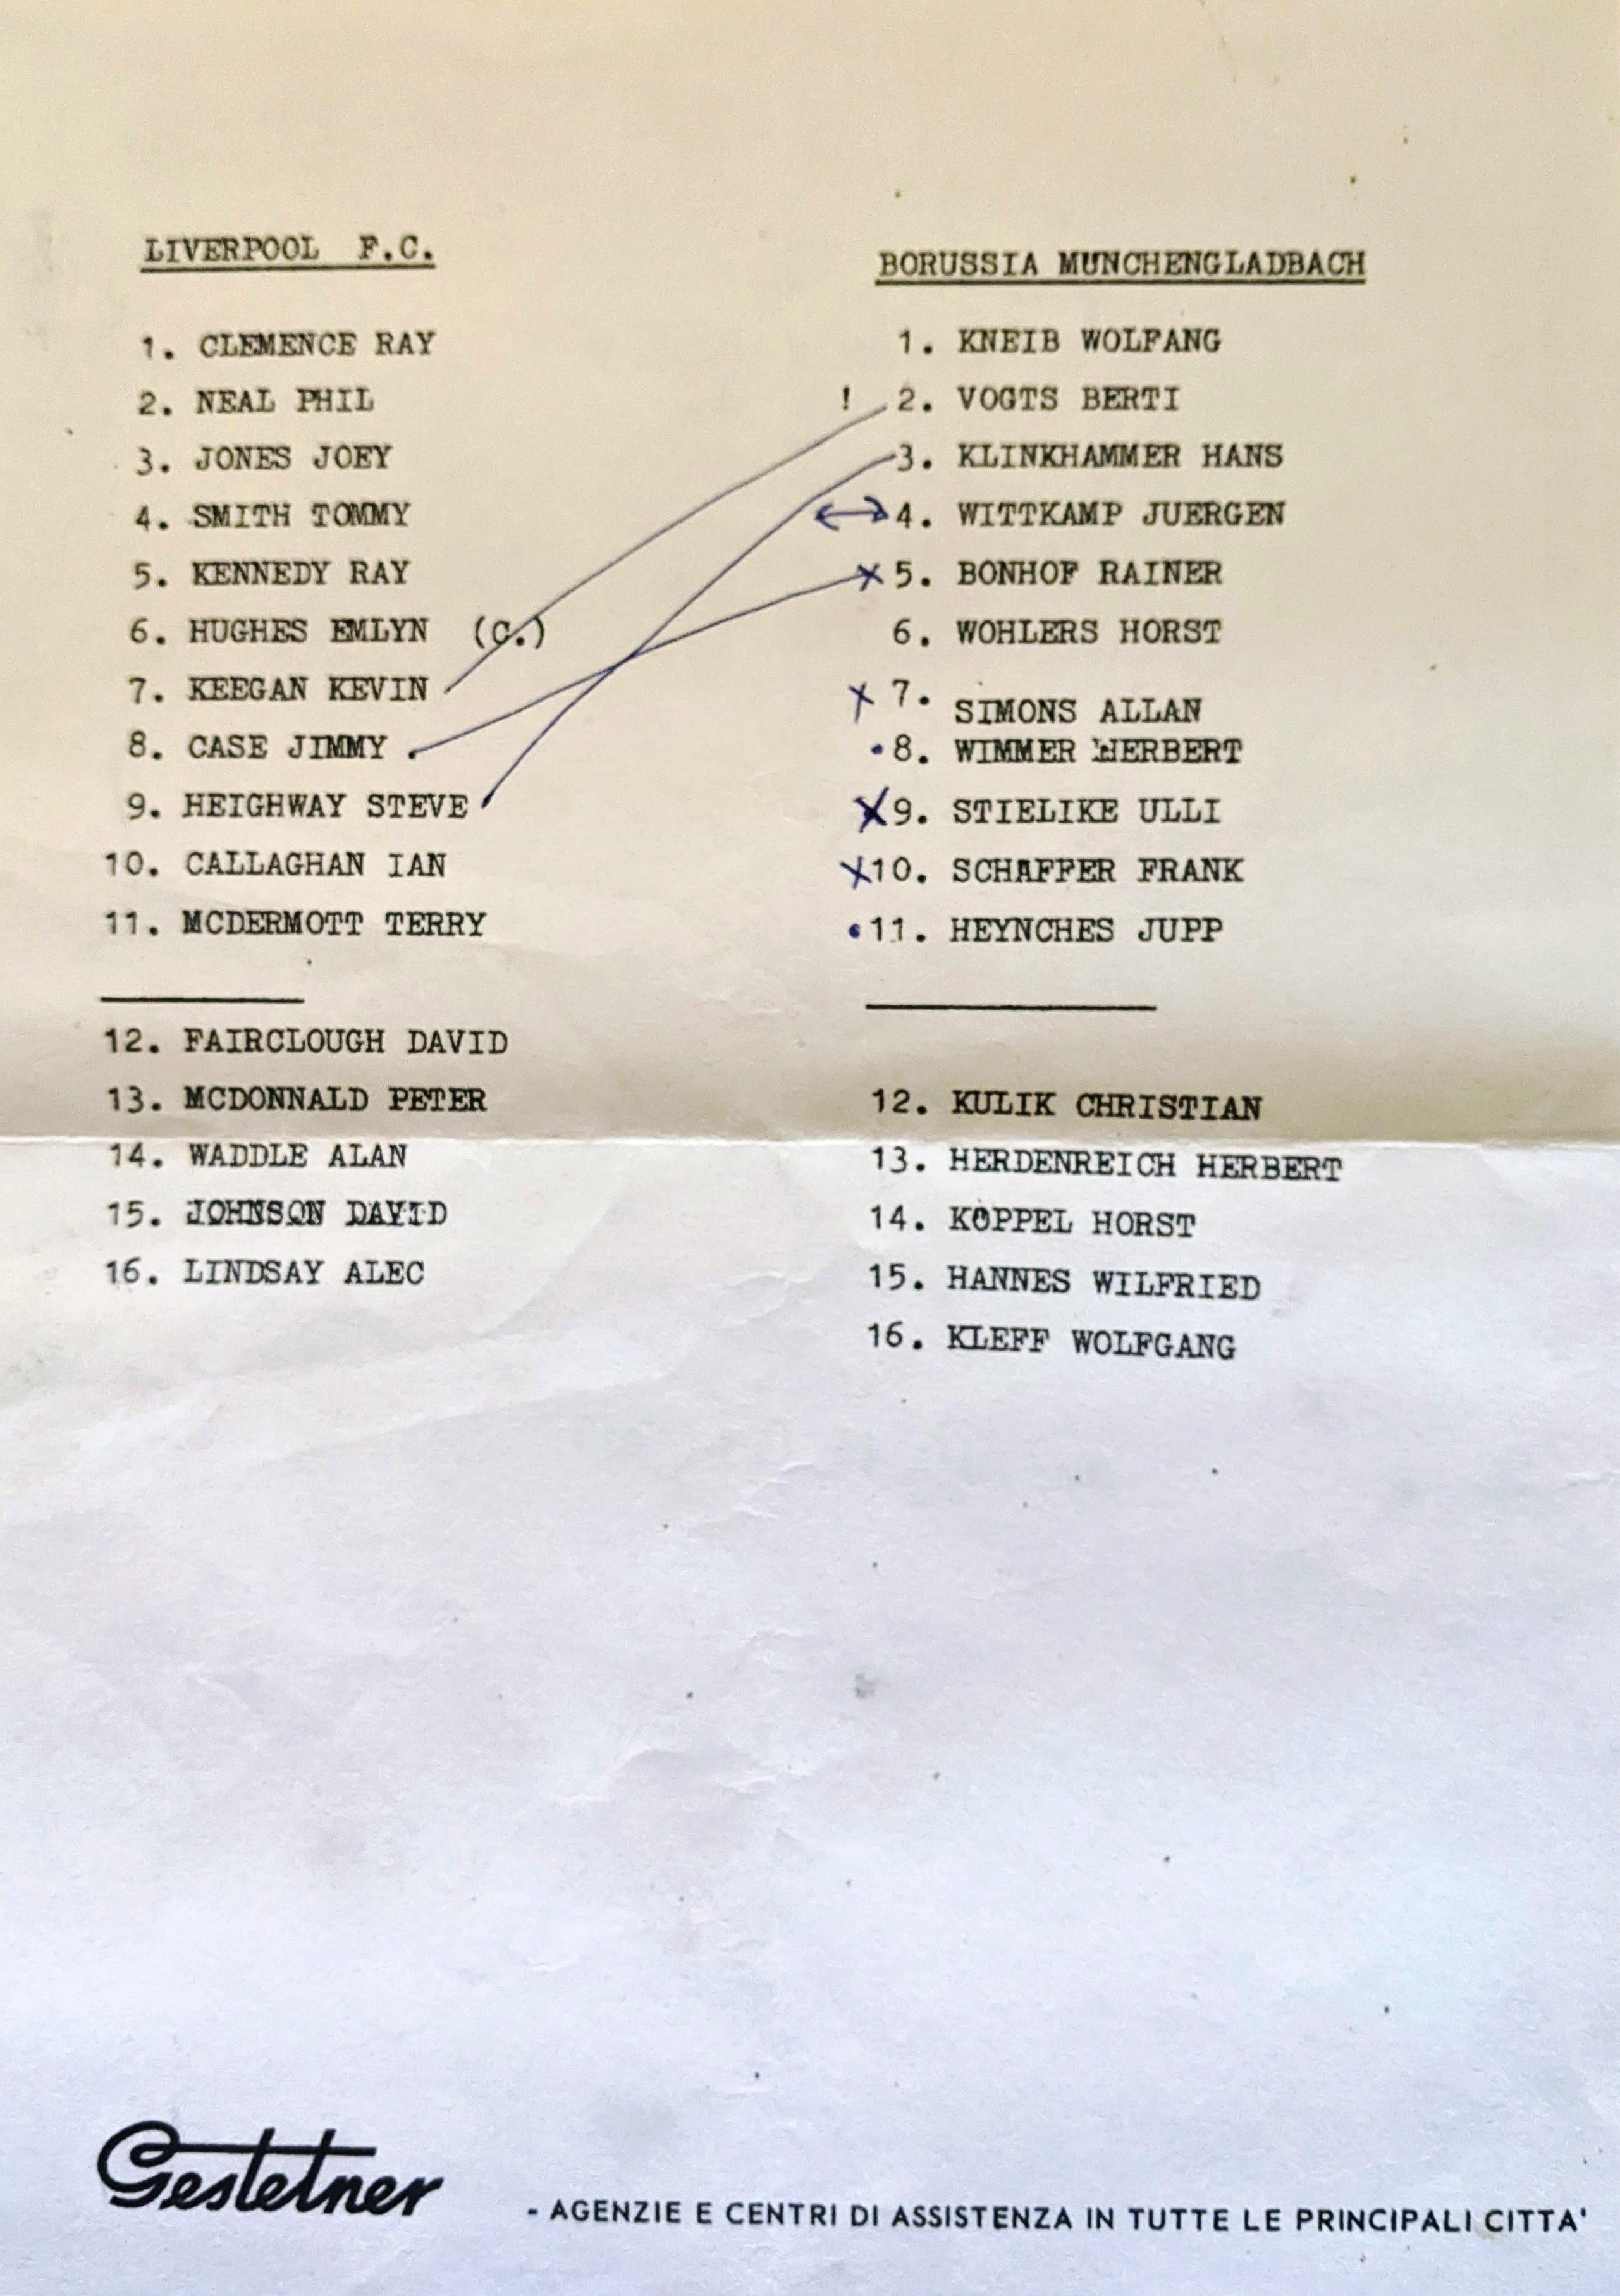 LIVERPOOL F.C.
1. CLEMENCE RAY
2. NEAL PHIL
3. JONES JOEY
4. SMITH TOMMY
5. KENNEDY RAY
6. HUGHES EMLYN (C.)
7. KEEGAN KEVIN
8. CASE JIMMY
9. HEIGHWAY STEVE
10. CALLAGHAN IAN
11. MCDERMOTT TERRY
12. FAIRCLOUGH DAVID
13. MCDONNALD PETER
14. WADDLE ALAN
15. JOHNSON DAVID
16. LINDSAY ALEC
BORUSSIA MUNCHENGLADBACH
1. KNEIB WOLFANG
! 2. VOGTS BERTI
3. KLINKHAMMER HANS
4. WITTKAMP JUERGEN
5. BONHOF RAINER
6. WOHLERS HORST
7. SIMONS ALLAN
8. WIMMER HERBERT
9. STIELIKE ULLI
10. SCHAFFER FRANK
11. HEYNCHES JUPP
12. KULIK CHRISTIAN
13. HERDENREICH HERBERT
14. KÖPPEL HORST
15. HANNES WILFRIED
16. KLEFF WOLFGANG
Gestetner - AGENZIE E CENTRI DI ASSISTENZA IN TUTTE LE PRINCIPALI CITTA'